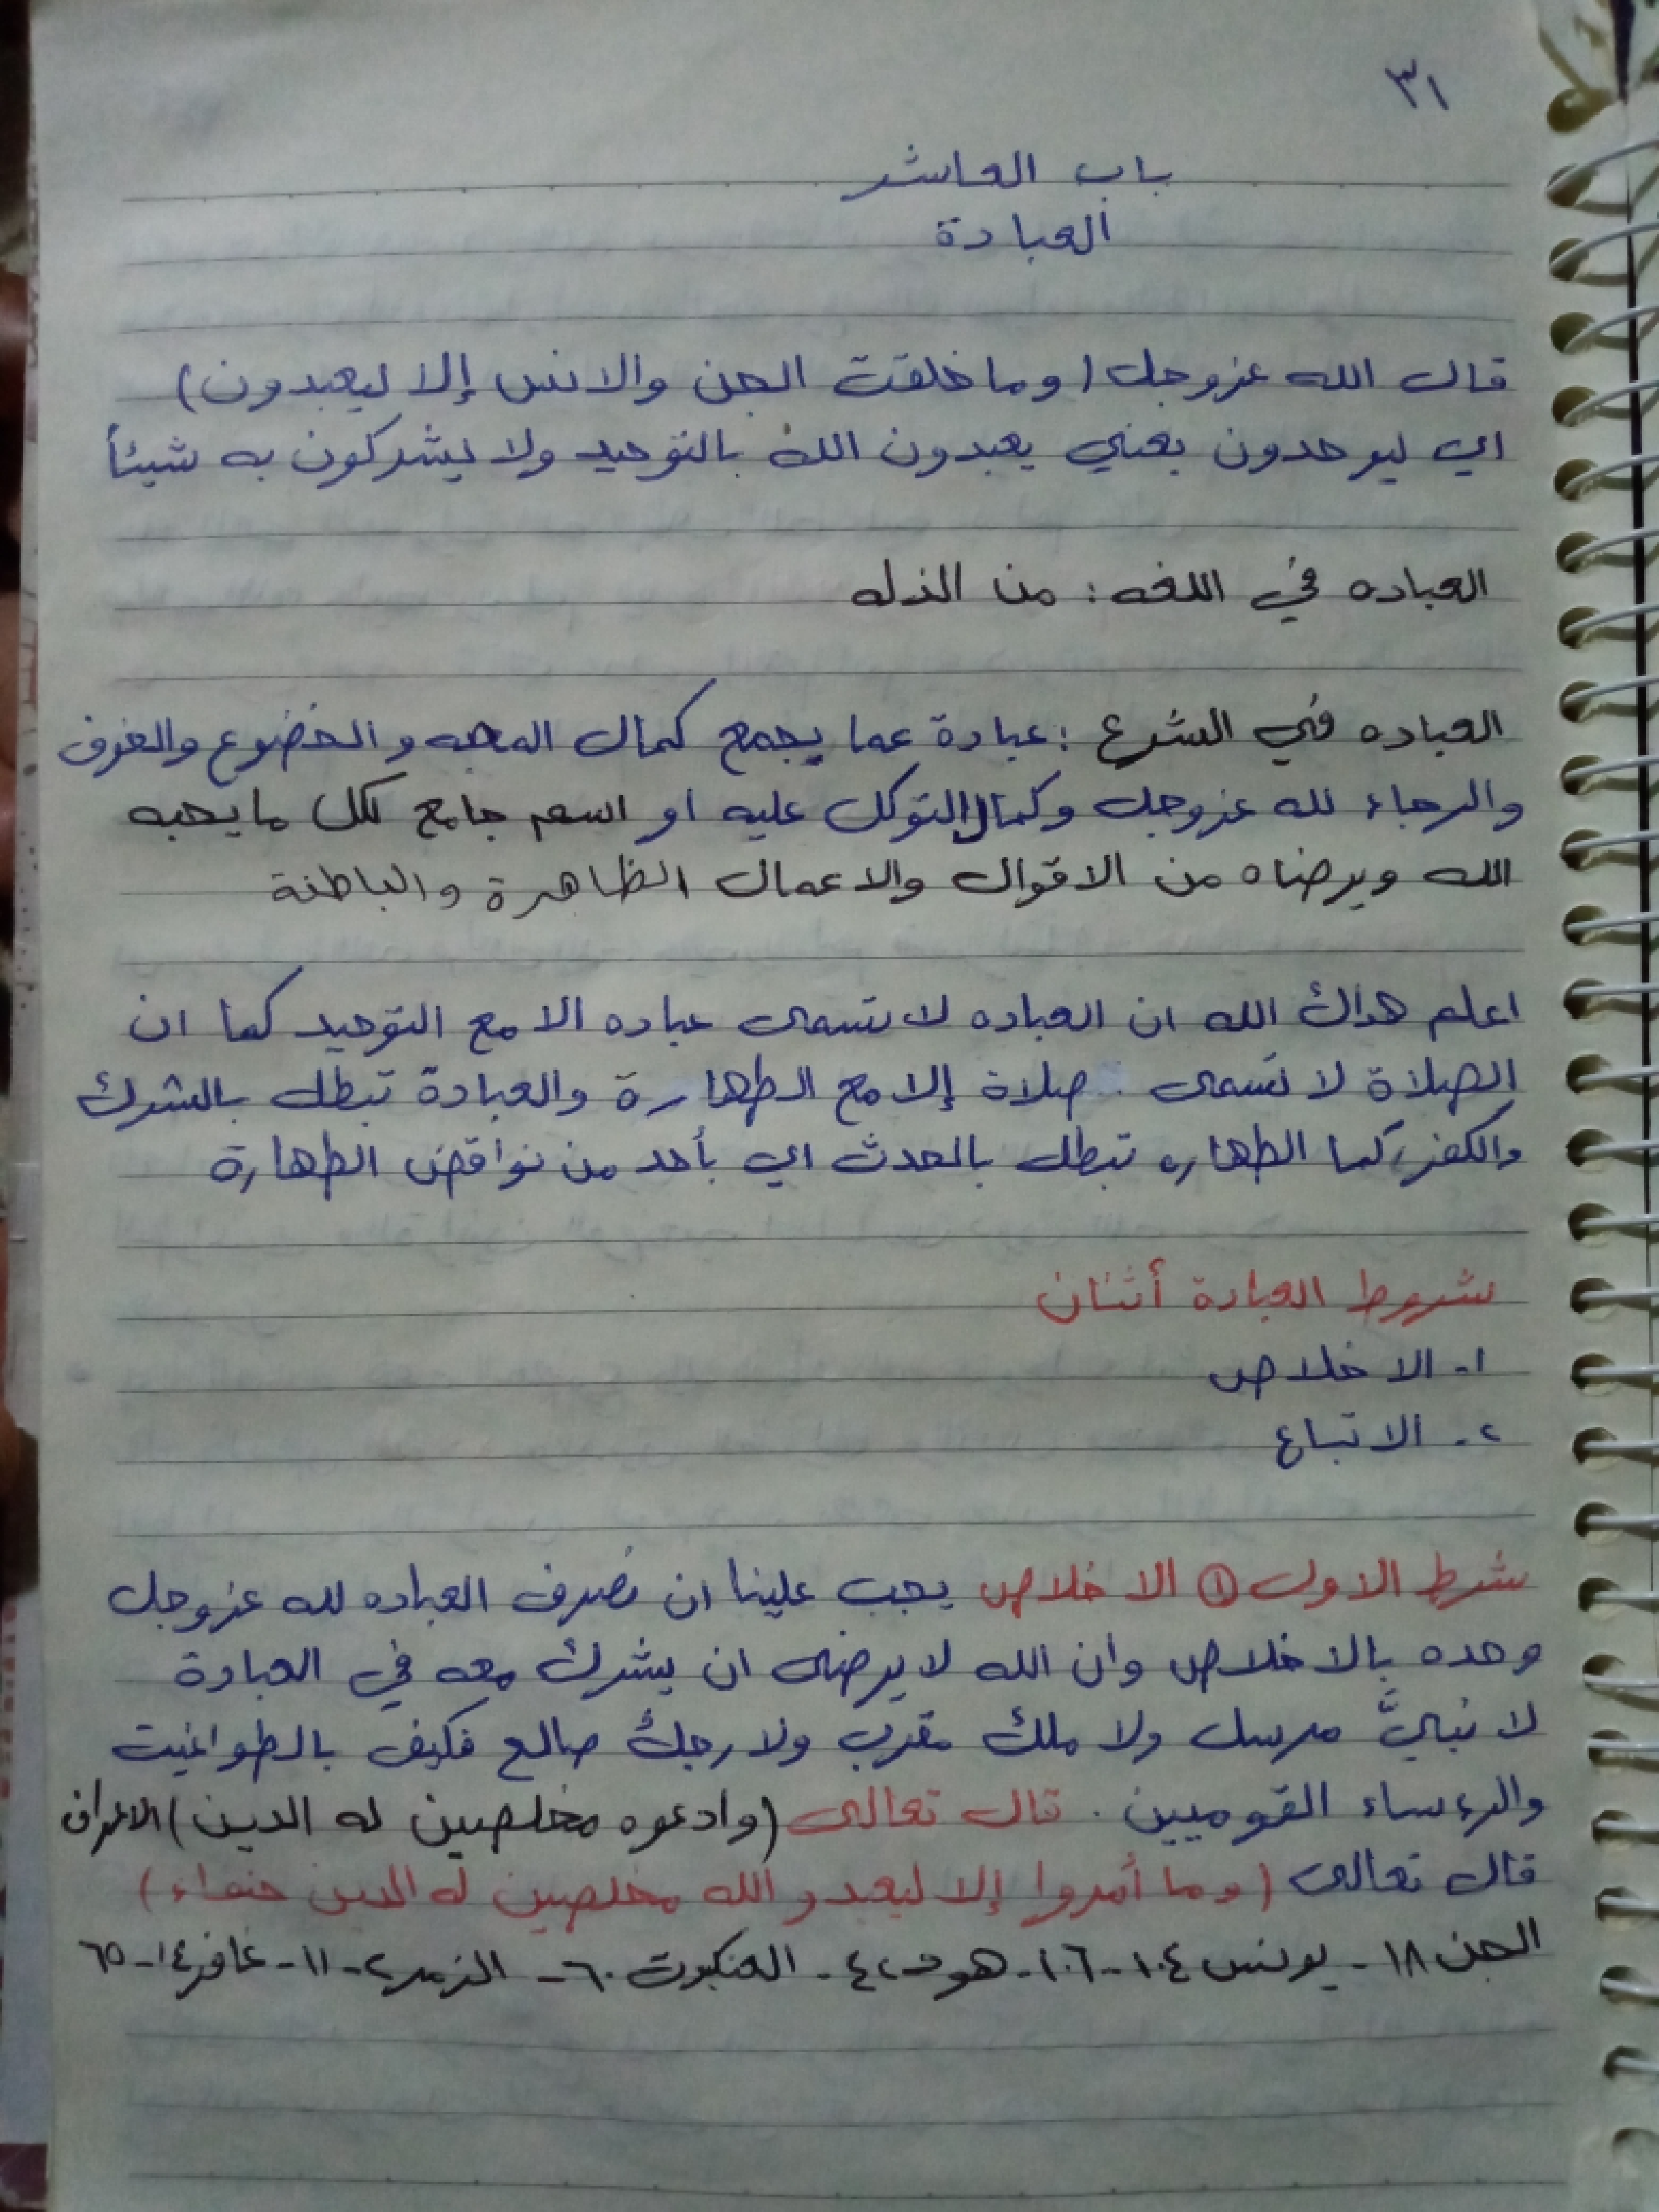 ٣١
باب العاشر
العبادة
قال الله عزوجل (وما خلقت الجن والانس إلا ليعبدون)
اي ليوحدون يعني يعبدون الله بالتوحيد ولا يشركون به شيئاً
العباده في اللغه : من الذله
العباده في الشرع : عبادة عما يجمع كمال المحبه والخضوع والخوف
والرجاء لله عزوجل وكمال التوكل عليه او اسم جامع لكل ما يحبه
الله ويرضاه من الاقوال والاعمال الظاهرة والباطنة
اعلم هداك الله ان العباده لا تسمى عباده الا مع التوحيد كما ان
الصلاة لا تسمى صلاة إلا مع الطهارة والعبادة تبطل بالشرك
والكفر، كما الطهاره تبطل بالحدث اي بأحد من نواقض الطهارة
شروط العبادة أثنان
١- الاخلاص
٢- الاتباع
شرط الاول ① الاخلاص يجب علينا ان نصرف العباده لله عزوجل
وحده بالاخلاص وان الله لا يرضى ان يشرك معه في العبادة
لا نبيَّ مرسل ولا ملك مقرب ولا رجلٌ صالح فكيف بالطواغيت
والرءساء القوميين . قال تعالى (وادعوه مخلصين له الدين) الاعراف
قال تعالى (وما أمروا إلا ليعبدو الله مخلصين له الدين حنفاء)
الجن ١٨ - يونس ١٠٤-١٠٦- هود ٢-٤ - العنكبوت ٦٠ - الزمر ٢-١١ - غافر ١٤-٦٥